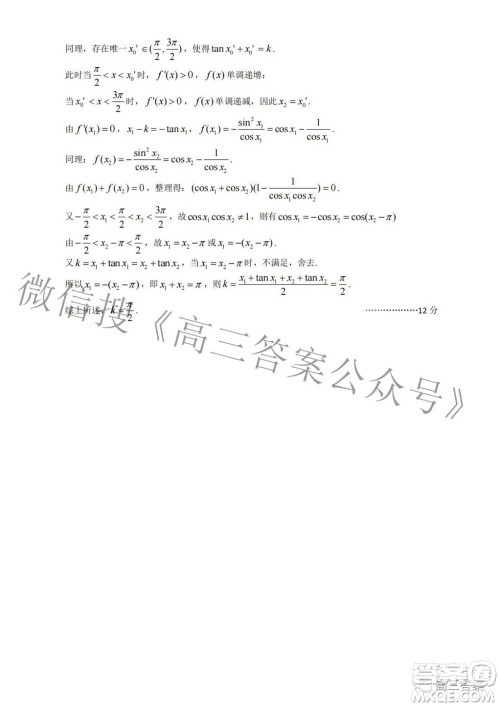 同理，存在唯一 x₀" ∈ (π/2, 3π/2)，使得 tan x₀" + x₀" = k．
此时当 π/2 < x < x₀" 时，f'(x) > 0，f(x) 单调递增；
当 x₀" < x < 3π/2 时，f'(x) > 0，f(x) 单调递减，因此 x₂ = x₀"．
由 f'(x₁) = 0，x₁ − k = −tan x₁，f(x₁) = −sin² x₁/cos x₁ = cos x₁ − 1/cos x₁．
同理：f(x₂) = −sin² x₂/cos x₂ = cos x₂ − 1/cos x₂．
由 f(x₁) + f(x₂) = 0，整理得：(cos x₁ + cos x₂)(1 − 1/(cos x₁ cos x₂)) = 0．
又 −π/2 < x₁ < π/2 < x₂ < 3π/2，故 cos x₁ cos x₂ ≠ 1，则有 cos x₁ = −cos x₂ = cos(x₂ − π)
由 −π/2 < x₂ − π < π/2，故 x₁ = x₂ − π 或 x₁ = −(x₂ − π)．
又 k = x₁ + tan x₁ = x₂ + tan x₂，当 x₁ = x₂ − π 时，不满足，舍去．
所以 x₁ = −(x₂ − π)，即 x₁ + x₂ = π，则 k = (x₁ + tan x₁ + x₂ + tan x₂)/2 = π/2．
综上所述，k = π/2． ··················12 分
微信搜《高三答案公众号》
高三答案